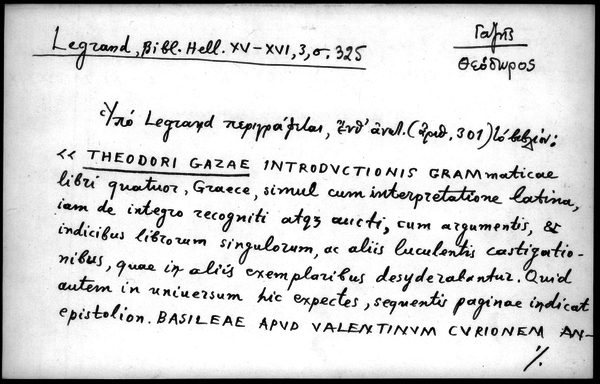 Legrand, Bibl. Hell. XV-XVI, 3, σ. 325
Γαζῆς
Θεόδωρος
Ὑπό Legrand περιγράφεται, ἔνθ' ἀνωτ. (ἀριθ. 301) τό βιβλίον:
« THEODORI GAZAE INTRODVCTIONIS GRAMmaticae
libri quatuor, Graece, simul cum interpretatione latina,
iam de integro recogniti atqȝ aucti, cum argumentis, &
indicibus librorum singulorum, ac aliis luculentis castigatio-
nibus, quae in aliis exemplaribus desyderabantur. Quid
autem in universum hic expectes, sequentis paginae indicat
epistolion. BASILEAE APVD VALENTINVM CVRIONEM AN-
./.